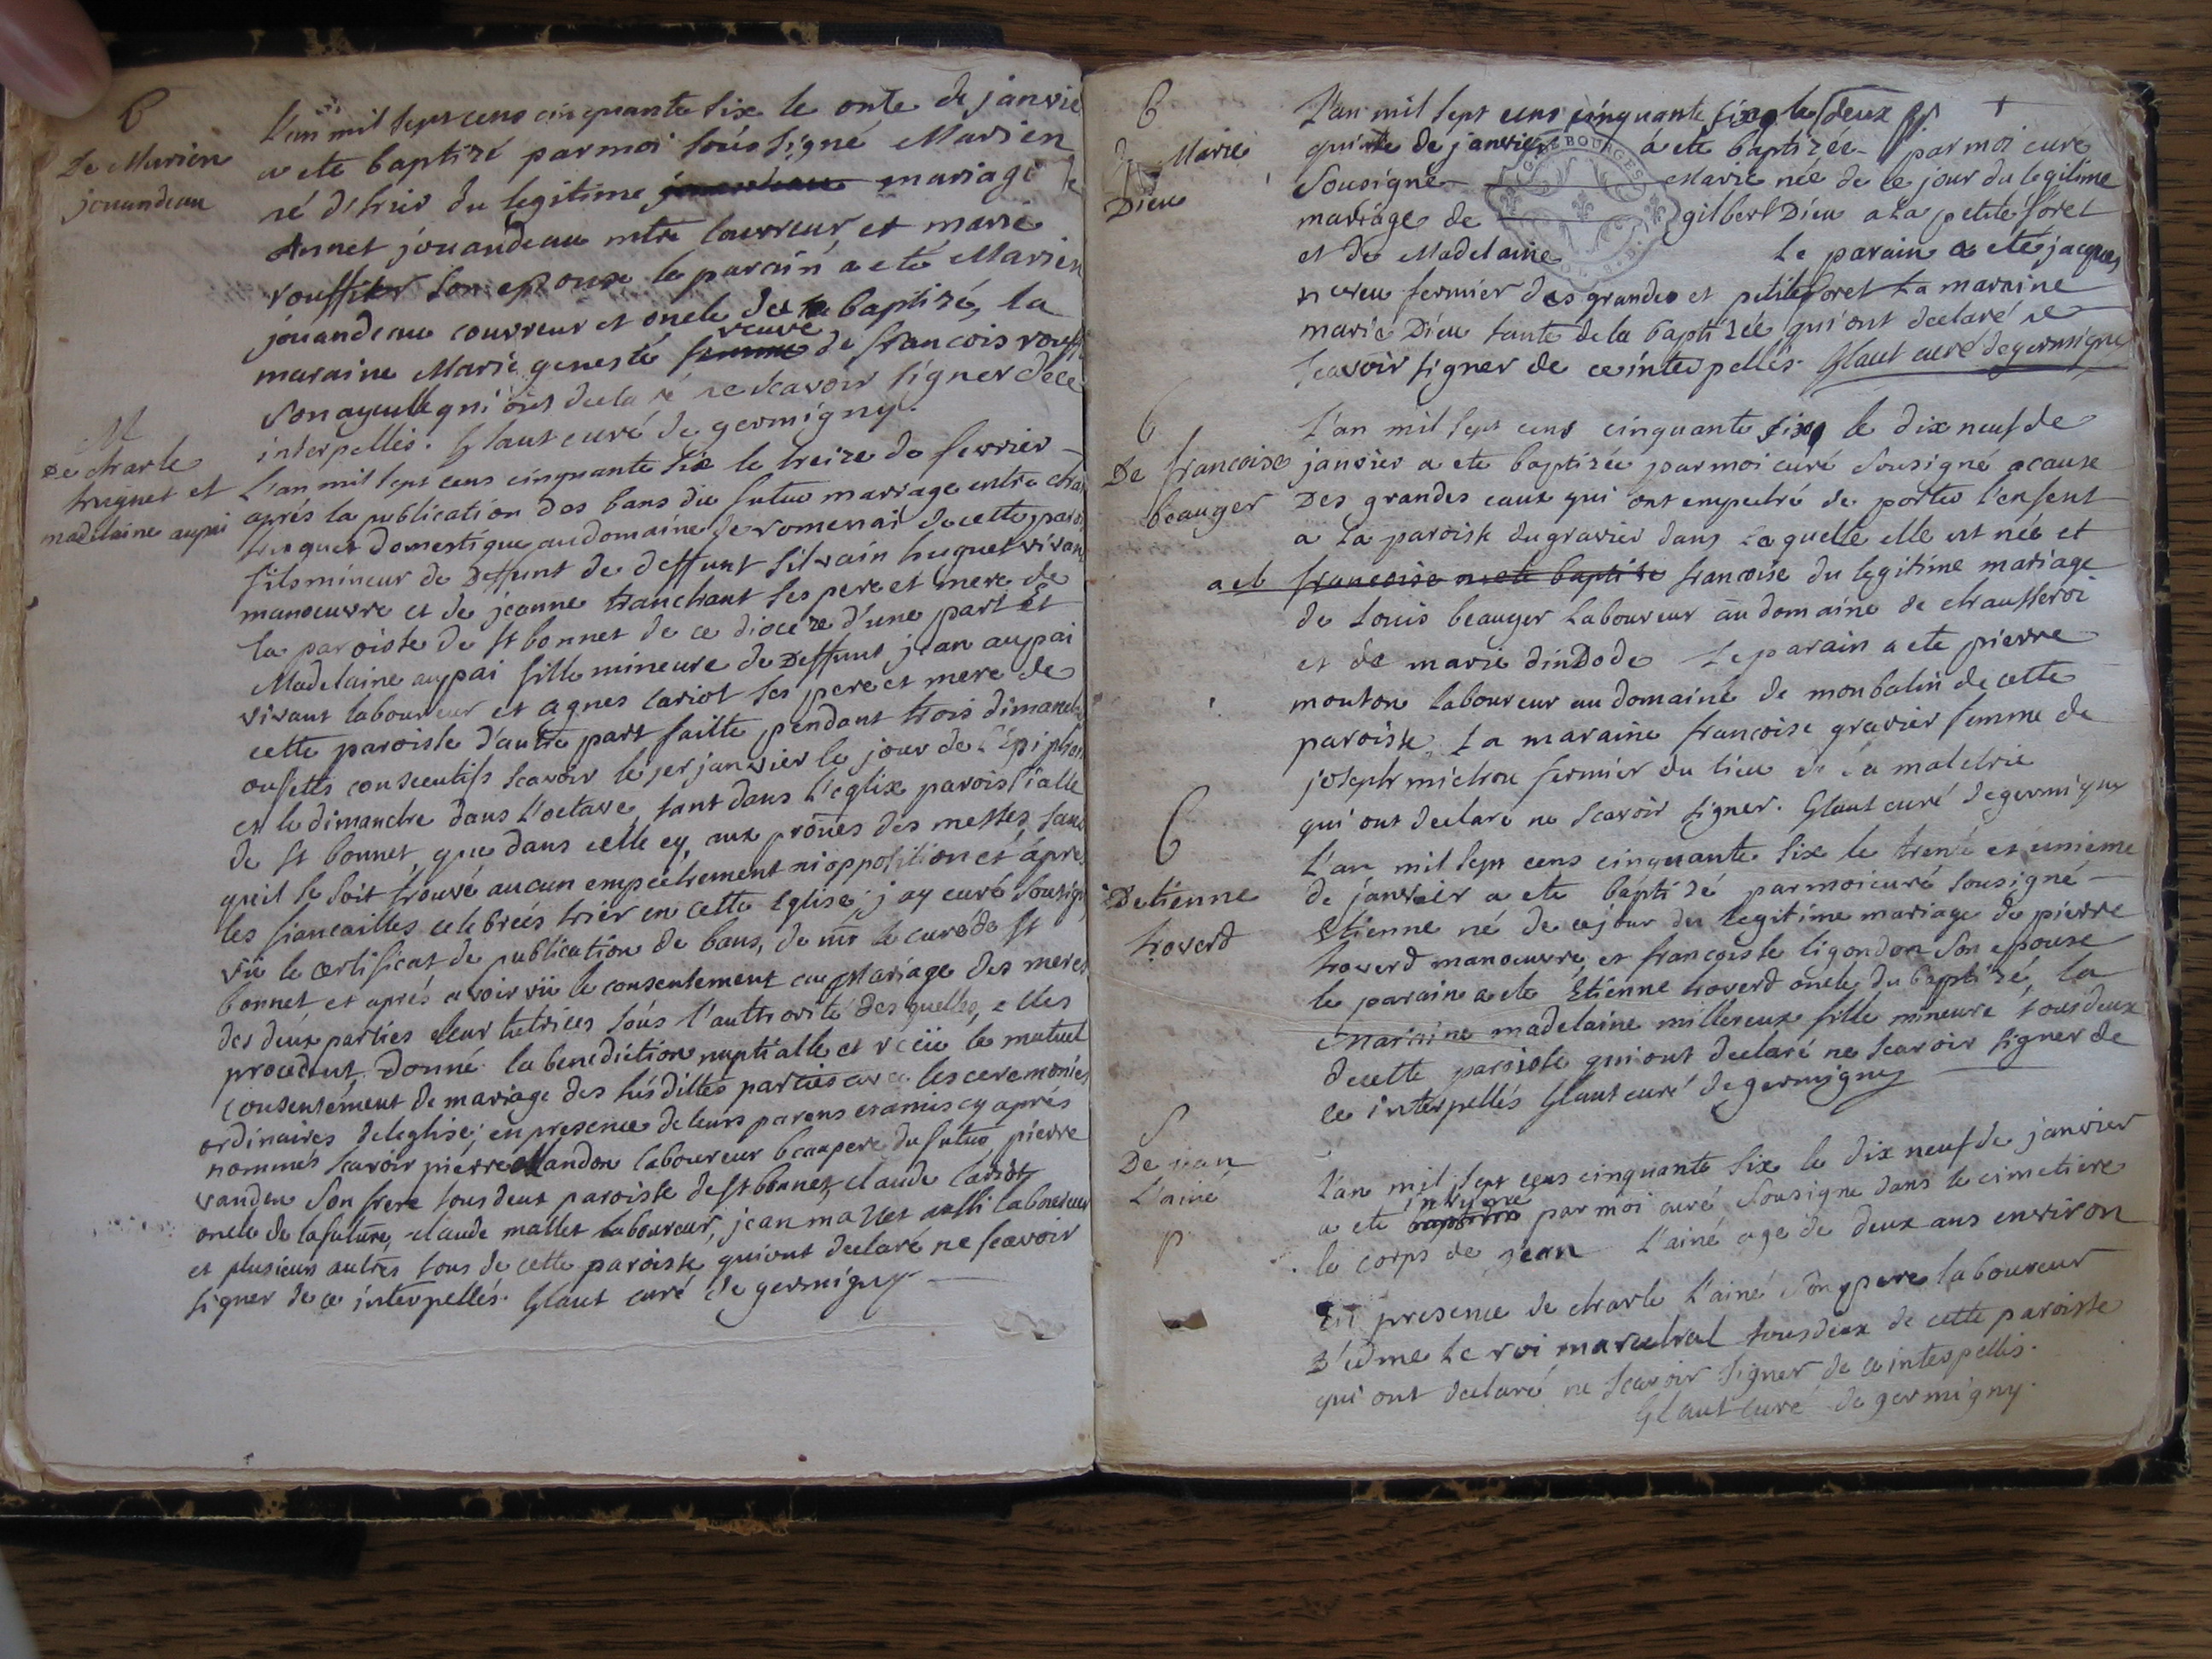 B
De Marien
jouandeau
L'an mil sept cens cinquante six le onze de janvie
a ete baptizé par moi sousigné Marien
né d'hier du legitime mariage de
Annet jouandeau mtre couvreur et marie
rouffier son epouse le parain a ete Marien
jouandeau couvreur et oncle du baptizé, la
maraine Marie geneste veuve de francois rouff
son ayeulle qui ont declaré ne scavoir signer de ce
interpellés. Glaut curé de germigny.
M
De charle
huguet et
madelaine aupai
L'an mil sept cens cinquante six le treize de fevrier
aprés la publication des bans du futur mariage entre char
huguet domestique au domaine de romenai de cette paroi
fils mineur de Deffunt de deffunt silvain huguet vivan
manoeuvre et de jeanne tranchant ses pere et mere de
la paroisse de st bonnet de ce dioceze d'une part et
Madelaine aupai fille mineure de Deffunt jean aupai
vivant laboureur et agnes cariot ses pere et mere de
cette paroisse d'autre part faitte pendant trois dimanch
ou fettes consecutifs scavoir le 1er janvier le jour de l'Epiphan
et le dimanche dans l'octave, tant dans l'eglise paroissialle
de st bonnet, que dans celle cy, aux prônes des messes, sans
qu'il se soit trouvé aucun empechement ni opposition et aprés
les fiancailles celebreés hier en cette Eglise, j'ay curé sousigné
vü le certificat de publication de bans, de mr le curé de st
bonnet, et aprés avoir vü le consentement au mariage des meres
des deux parties leur tutrices sous l'authorité desquelles, elles
procedent, Donné la benediction nuptialle et recü le mutuel
consentement de mariage des susdittes parties avec les ceremonies
ordinaires de leglise; en presence de leurs parens et amis cy aprés
nommés scavoir pierre Mandon laboureur beaupere du futur, pierre
vanden son frere tous deux paroisse de st bonnet, claude cariot
oncle de la future, claude mallet laboureur, jean mallet aussi laboureur
et plusieurs autres tous de cette paroisse qui ont declaré ne scavoir
signer de ce interpellés. Glaut curé de germigny
B
De Marie
Dieu
L'an mil sept cens cinquante six le deux
quinze de janvier a ete baptizée par moi curé
sousigné Marie née de ce jour du legitime
mariage de gilbert Dieu a la petite foret
et de Madelaine Le parain a ete jacques
fermier des grandes et petite foret La maraine
marie Dieu tante de la baptizée qui ont declaré ne
scavoir signer de ce interpellés. Glaut curé de germigny
B
De francoise
beauger
L'an mil sept cens cinquante six le dix neuf de
janvier a ete baptizée par moi curé sousigné a cause
Des grandes eaux qui ont empeché de porter l'enfent
a la paroisse du gravier dans laquelle elle est née et
a eb francoise a ete baptisé francoise du legitime mariage
de Louis beauger Laboureur au domaine de chausseroi
et de marie dindode Le parain a ete pierre
mouton laboureur au domaine de monbalin de cette
paroisse, La maraine francoise gravier femme de
joseph michou fermier du lieu de la maletrie
qui ont declaré ne scavoir signer. Glaut curé de germigny
B
Detienne
hoverd
L'an mil sept cens cinquante six le trente et unieme
de janvier a ete baptizé par moi curé sousigné
Etienne né de ce jour du legitime mariage de pierre
hoverd manoeuvre, et francoise ligondon son epouse
le parain a ete Etienne hoverd oncle du baptizé, la
Maraine madelaine millereux fille mineure tous deux
de cette paroisse qui ont declaré ne scavoir signer de
ce interpellés Glaut curé de germigny
S
De jean
L'ainé
p
L'an mil sept cens cinquante six le dix neuf de janvier
a ete inhumé par moi curé sousigné dans le cimetiere
le corps de jean L'ainé agé de deux ans environ
En presence de charle L'ainé son pere laboureur
D'edme Le roi marechal tous deux de cette paroisse
qui ont declaré ne scavoir signer de ce interpellés.
Glaut curé de germigny.